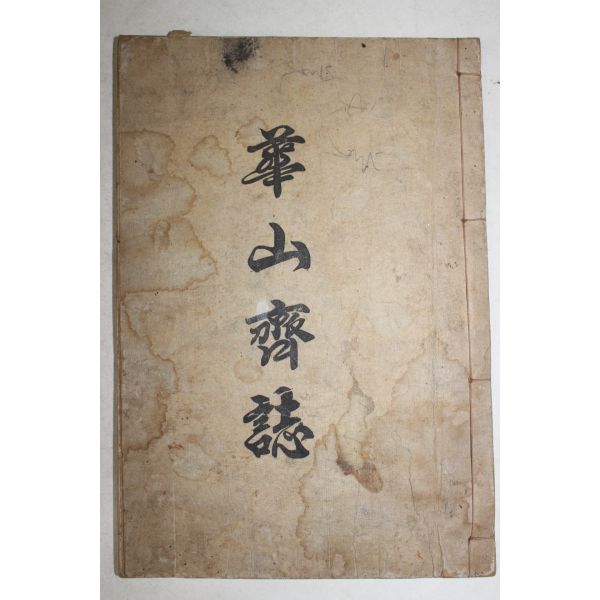 華山齋誌